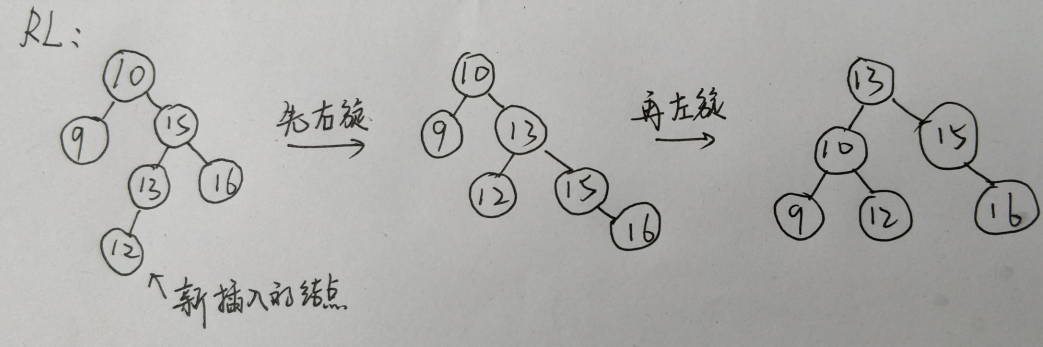 RL:
10
9 15
13 16
12
新插入的结点
先右旋
10
9 13
12 15
16
再左旋
13
10 15
9 12 16